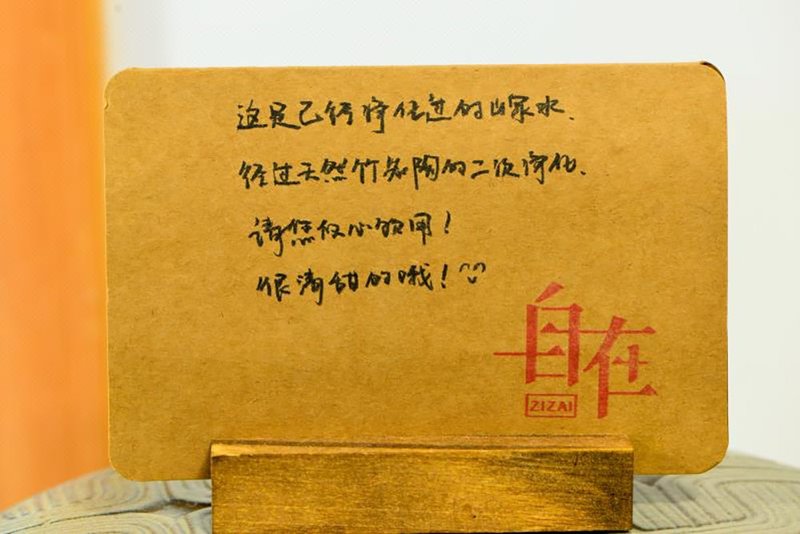 这是已经净化过的山泉水.
经过天然竹和陶的二次净化.
请您放心饮用！
很清甜的哦！
自在
ZIZAI